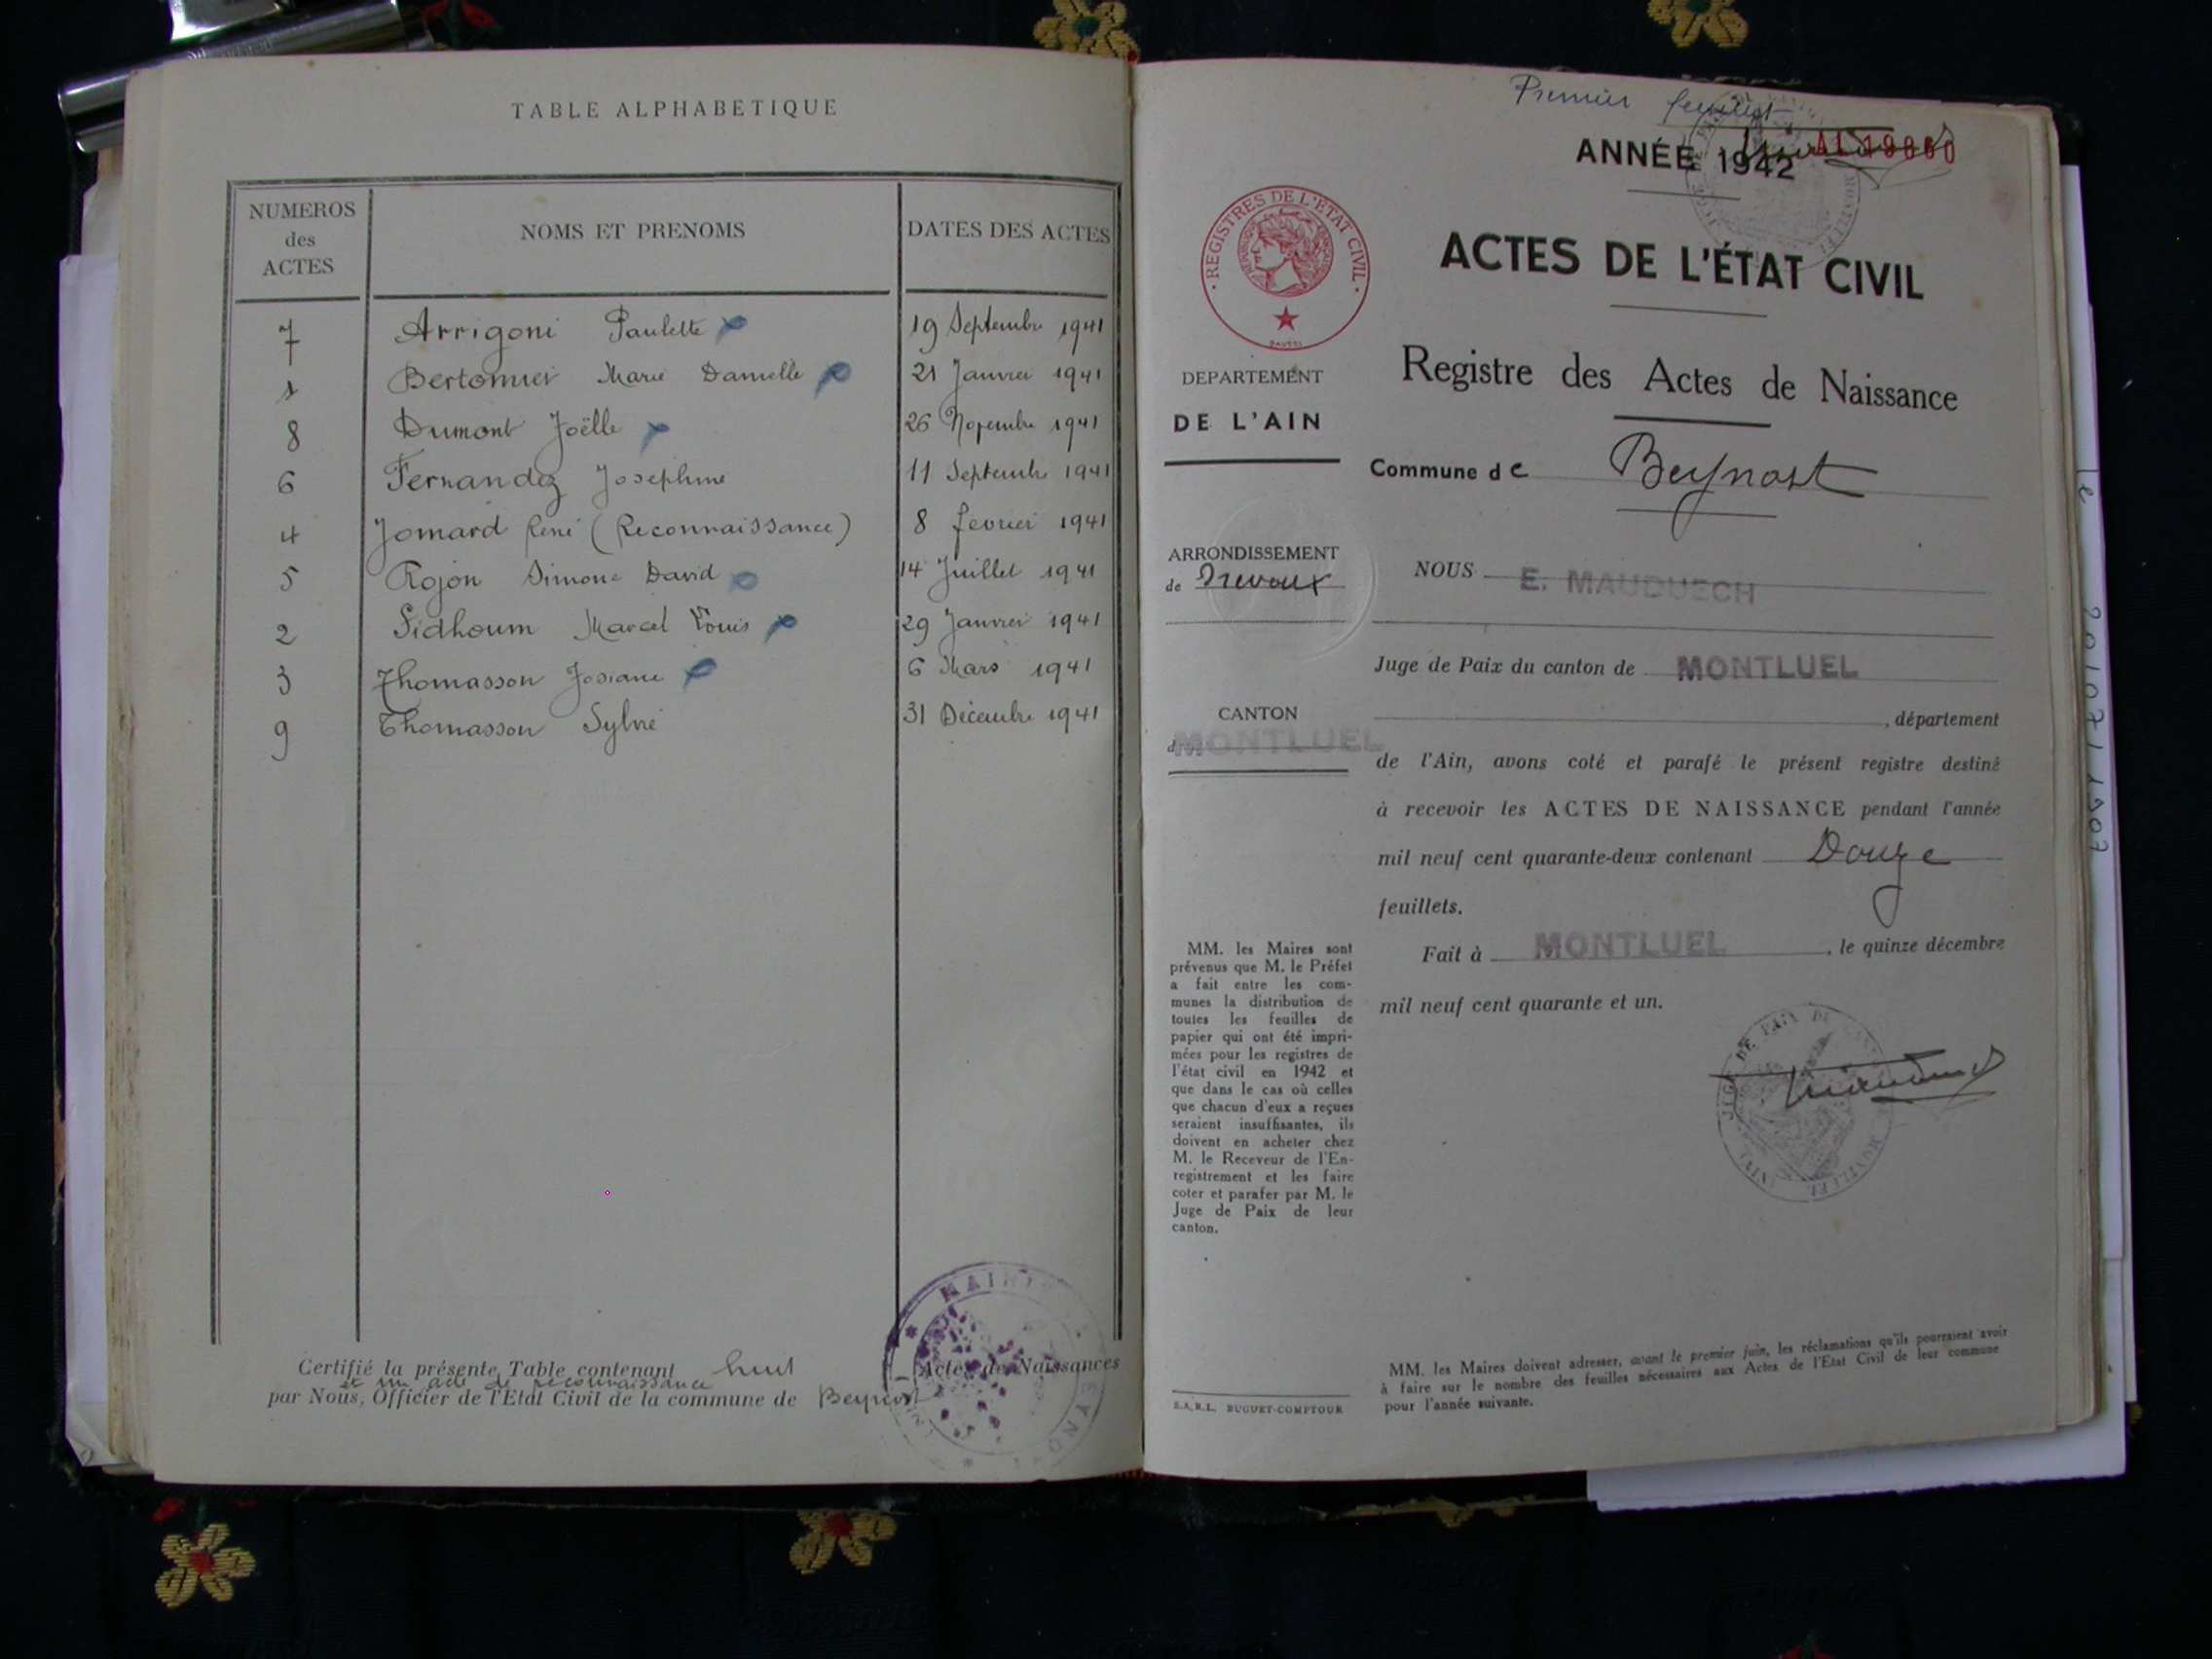 TABLE ALPHABETIQUE
NUMEROS des ACTES NOMS ET PRENOMS DATES DES ACTES
7 Arrigoni Paulette 19 Septembre 1941
1 Bertonnier Marie Danielle 21 Janvier 1941
8 Dumont Joëlle 26 Novembre 1941
6 Fernandez Josephine 11 Septembre 1941
4 Jomard René (Reconnaissance) 8 fevrier 1941
5 Rojon Simone David 14 Juillet 1941
2 Sidhoum Marcel Louis 29 Janvier 1941
3 Thomasson Josiane 6 Mars 1941
9 Thomasson Sylvie 31 Décembre 1941
Certifié la présente Table contenant huit Actes de Naissances
et un acte de reconnaissance
par Nous, Officier de l'Etat Civil de la commune de Beynost
MAIRIE
Premier feuillet
ANNÉE 1942
REGISTRES DE L'ETAT CIVIL
ACTES DE L'ÉTAT CIVIL
Registre des Actes de Naissance
DEPARTEMENT
DE L'AIN
Commune de Beynost
ARRONDISSEMENT
de Trevoux
NOUS E. MAUDUECH
Juge de Paix du canton de MONTLUEL
CANTON
d MONTLUEL
, département
de l'Ain, avons coté et parafé le présent registre destiné
à recevoir les ACTES DE NAISSANCE pendant l'année
mil neuf cent quarante-deux contenant Douze
feuillets.
Fait à MONTLUEL, le quinze décembre
mil neuf cent quarante et un.
MM. les Maires sont
prévenus que M. le Préfet
a fait entre les com-
munes la distribution de
toutes les feuilles de
papier qui ont été impri-
mées pour les registres de
l'état civil en 1942 et
que dans le cas où celles
que chacun d'eux a reçues
seraient insuffisantes, ils
doivent en acheter chez
M. le Receveur de l'En-
registrement et les faire
coter et parafer par M. le
Juge de Paix de leur
canton.
S.A.R.L. BUGUET-COMPTOUR
MM. les Maires doivent adresser, avant le premier juin, les réclamations qu'ils pourraient avoir
à faire sur le nombre des feuilles nécessaires aux Actes de l'Etat Civil de leur commune
pour l'année suivante.